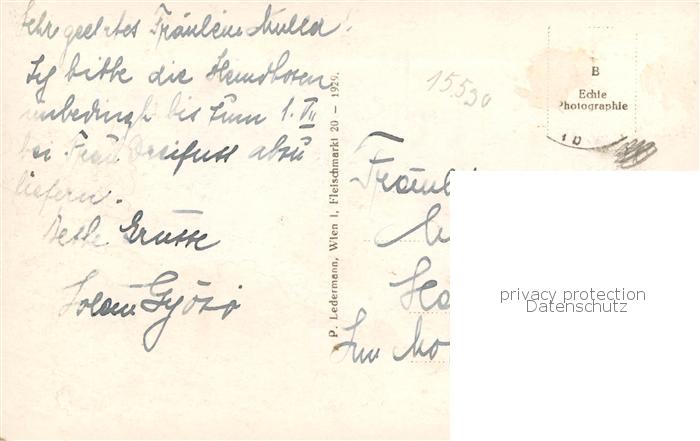 Sehr geehrtes Fräulein Muller!
Ich bitte die Hemdhosen
unbedingt bis zum 1. III
bei Frau Dreifuss abzu
liefern.
Beste Grüsse
P. Ledermann, Wien I, Fleischmarkt 20 – 1929.
15530
B
Echte
Photographie
Fräul
privacy protection
Datenschutz